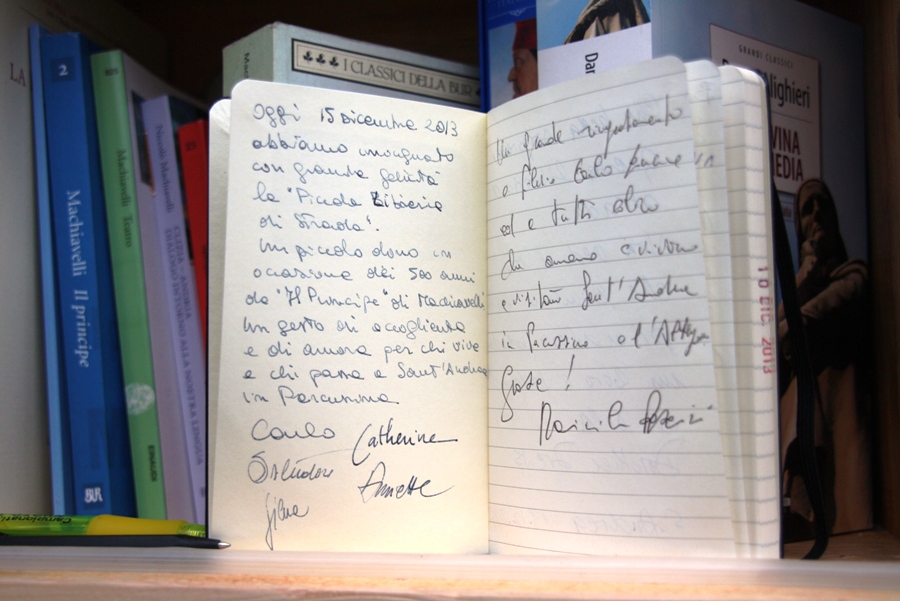 LA
2
Machiavelli Il principe
BUR
Machiavelli Teatro
EINAUDI
Niccolò Machiavelli
DIALOGO INTORNO ALLA NOSTRA LINGUA
I CLASSICI DELLA BUR
Dan
GRANDI CLASSICI
Alighieri
VINA
MEDIA
Oggi 15 Dicembre 2013
abbiamo inaugurato
con grande felicità
la "Piccola Biblioteca
di Strada".
Un piccolo dono in
occasione dei 500 anni
de "Il Principe" di Machiavelli
Un gesto di accoglienza
e di amore per chi vive
e chi passa a Sant'Andrea
in Percussina.
Carlo Catherine
Salvatore Annette
Un grande ringraziamento
a Carlo
ed a tutti
che amano e vivono
e visitano Sant'Andrea
in Percussina
Grazie!
10 DIC 2013